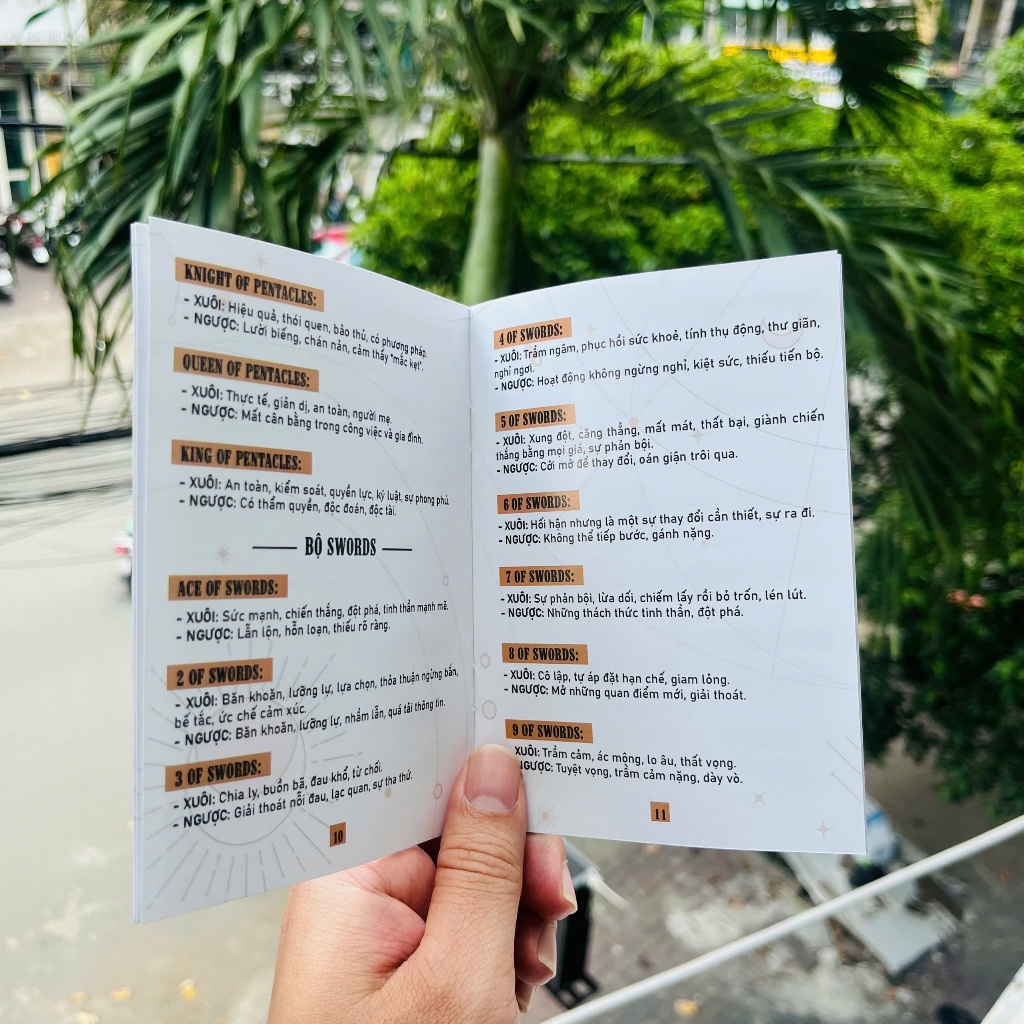 KNIGHT OF PENTACLES:
- XUÔI: Hiệu quả, thói quen, bảo thủ, có phương pháp.
- NGƯỢC: Lười biếng, chán nản, cảm thấy "mắc kẹt".
QUEEN OF PENTACLES:
- XUÔI: Thực tế, giản dị, an toàn, người mẹ.
- NGƯỢC: Mất cân bằng trong công việc và gia đình.
KING OF PENTACLES:
- XUÔI: An toàn, kiểm soát, quyền lực, kỷ luật, sự phong phú.
- NGƯỢC: Có thẩm quyền, độc đoán, độc tài.
BỘ SWORDS
ACE OF SWORDS:
- XUÔI: Sức mạnh, chiến thắng, đột phá, tinh thần mạnh mẽ.
- NGƯỢC: Lẫn lộn, hỗn loạn, thiếu rõ ràng.
2 OF SWORDS:
- XUÔI: Băn khoăn, lưỡng lự, lựa chọn, thỏa thuận ngừng bắn,
bế tắc, ức chế cảm xúc.
- NGƯỢC: Băn khoăn, lưỡng lự, nhầm lẫn, quá tải thông tin.
3 OF SWORDS:
- XUÔI: Chia ly, buồn bã, đau khổ, từ chối.
- NGƯỢC: Giải thoát nỗi đau, lạc quan, sự tha thứ.
10
4 OF SWORDS:
- XUÔI: Trầm ngâm, phục hồi sức khoẻ, tính thụ động, thư giãn,
nghỉ ngơi.
- NGƯỢC: Hoạt động không ngừng nghỉ, kiệt sức, thiếu tiến bộ.
5 OF SWORDS:
- XUÔI: Xung đột, căng thẳng, mất mát, thất bại, giành chiến
thắng bằng mọi giá, sự phản bội.
- NGƯỢC: Cởi mở để thay đổi, oán giận trôi qua.
6 OF SWORDS:
- XUÔI: Hối hận nhưng là một sự thay đổi cần thiết, sự ra đi.
- NGƯỢC: Không thể tiếp bước, gánh nặng.
7 OF SWORDS:
- XUÔI: Sự phản bội, lừa dối, chiếm lấy rồi bỏ trốn, lén lút.
- NGƯỢC: Những thách thức tinh thần, đột phá.
8 OF SWORDS:
- XUÔI: Cô lập, tự áp đặt hạn chế, giam lỏng.
- NGƯỢC: Mở những quan điểm mới, giải thoát.
9 OF SWORDS:
XUÔI: Trầm cảm, ác mộng, lo âu, thất vọng.
NGƯỢC: Tuyệt vọng, trầm cảm nặng, dày vò.
11